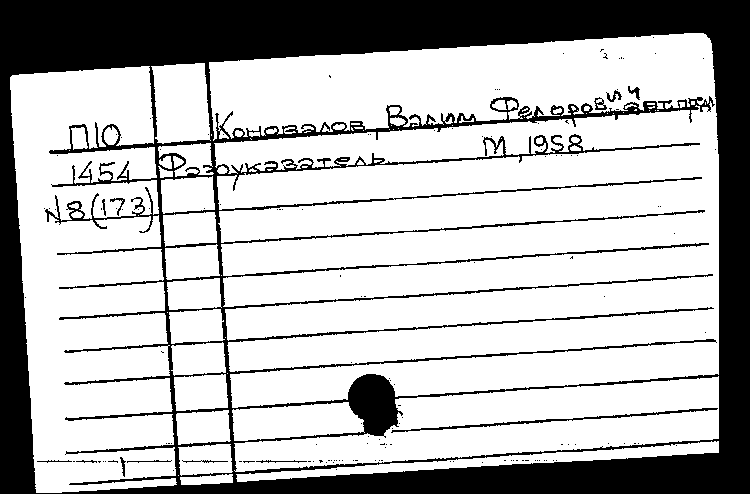 П10
Коновалов, Вадим Федорович,
1454 Фазоуказатель М, 1958.
N8(173)